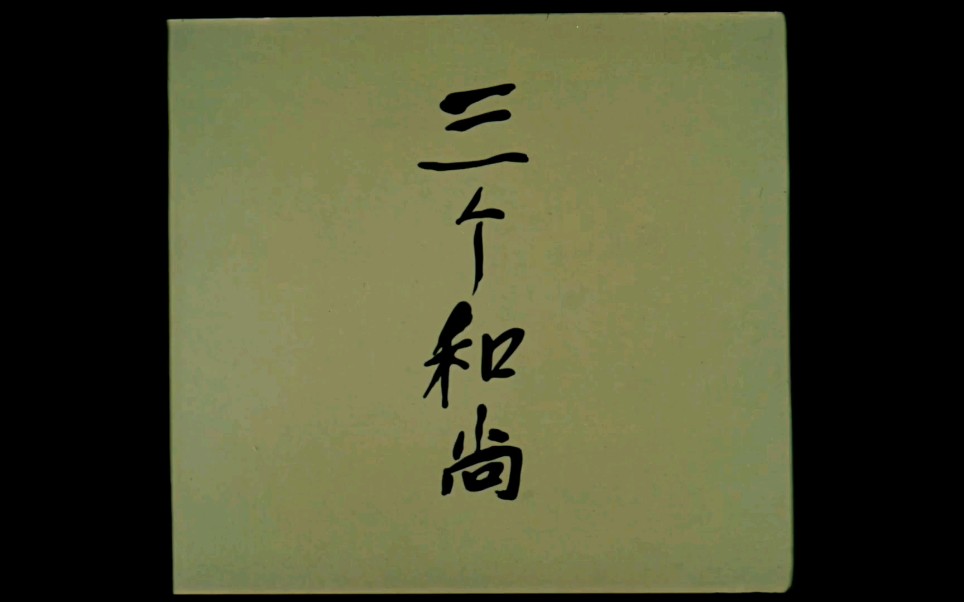 三个和尚